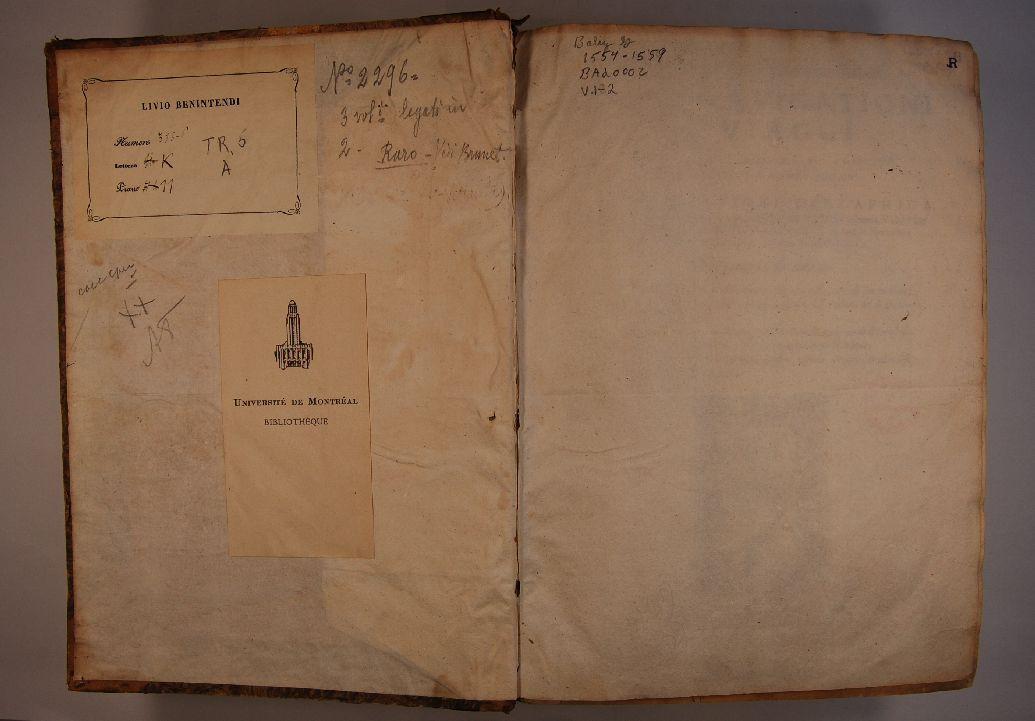 LIVIO BENINTENDI
Numero
Lettera K
Piano 11
TR. 6
A
No 2296=
3 vol.i legati in
2 - Raro - Vedi Brunet.
UNIVERSITÉ DE MONTRÉAL
BIBLIOTHÈQUE
1554-1559
BAd0002
V.1-2
R